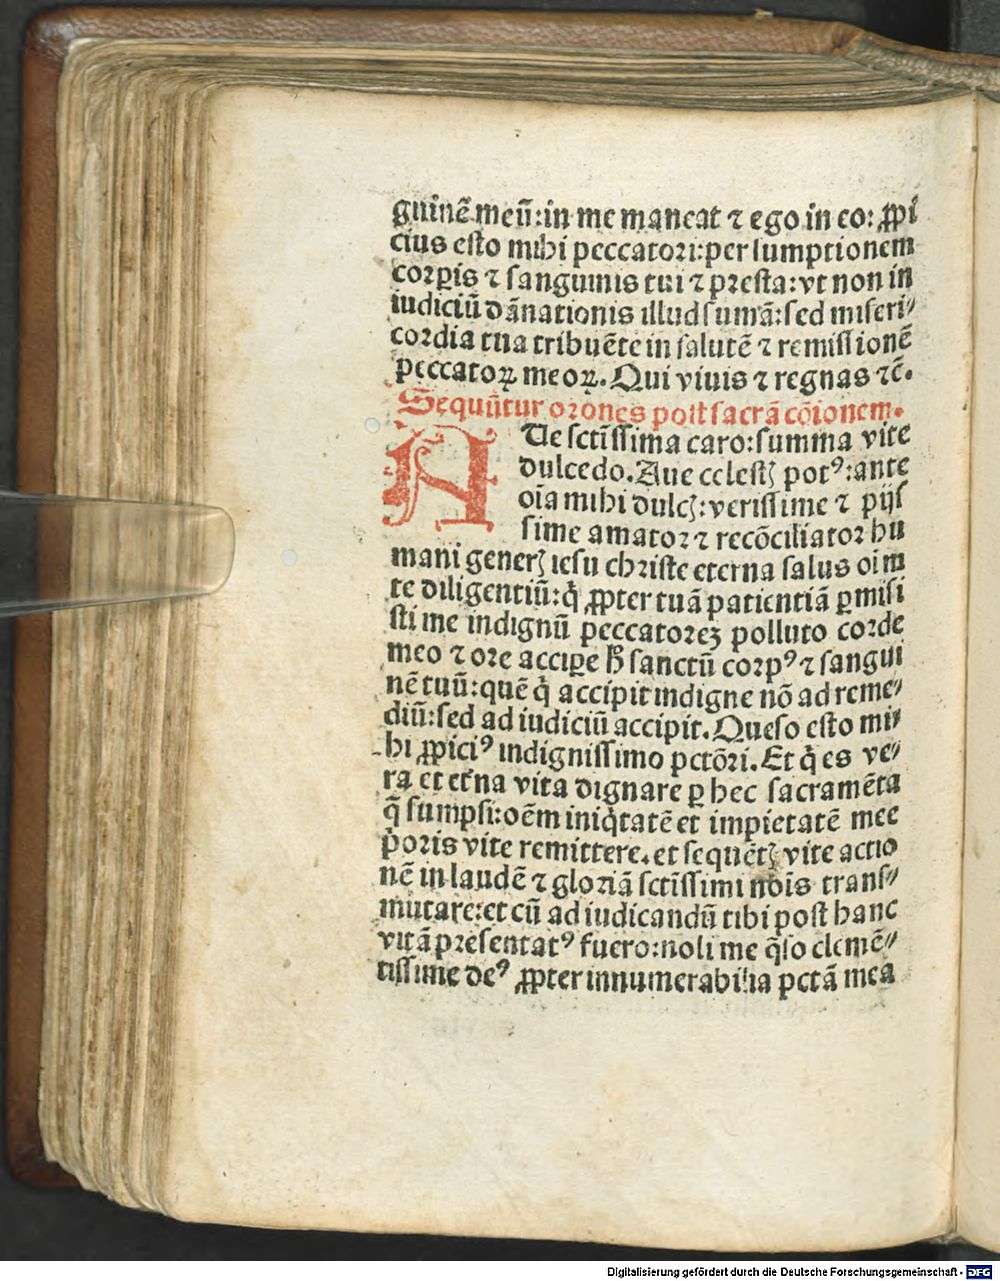 guinē meū:in me maneat ⁊ ego in eo: ꝓpi
cius esto mihi peccatori:per sumptionem
corꝑis ⁊ sanguinis tui ⁊ presta:vt non in
iudiciū dānationis illud sumā:sed miseri⸗
cordia tua tribuēte in salutē ⁊ remissionē
peccatoꝝ meoꝝ. Qui viuis ⁊ regnas ⁊c̄.
Sequūtur orones post sacrā cōionem.
AUe sctīssima caro:summa vite
dulcedo. Aue celestꝭ potꝰ:ante
oīa mihi dulcꝭ:verissime ⁊ pijs
sime amator ⁊ recōciliator hu
mani generꝭ iesu christe eterna salus oīm
te diligentiū:q̇ ꝓpter tuā patientiā ꝑmisi
sti me indignū peccatorēꝫ polluto corde
meo ⁊ ore accipe h̄ sanctū corpꝰ ⁊ sangui
nē tuū:quē q̇ accipit indigne nō ad reme⸗
diū:sed ad iudiciū accipit. Queso esto mi⸗
hi ꝓpiciꝰ indignissimo pctōri. Et q̇ es ve⸗
ra et et̄na vita dignare ꝑ hec sacramēta
q̄ sumpsi:oēm iniq̇tatē et impietatē mee
p̓oris vite remittere. et sequētꝭ vite actio
nē in laudē ⁊ gloriā sctīssimi nōis trans⸗
mutare:et cū ad iudicandū tibi post hanc
vitā presentatꝰ fuero:noli me q̄so clemē⸗
tissime deꝰ ꝓpter innumerabilia pctā mea
Digitalisierung gefördert durch die Deutsche Forschungsgemeinschaft - DFG